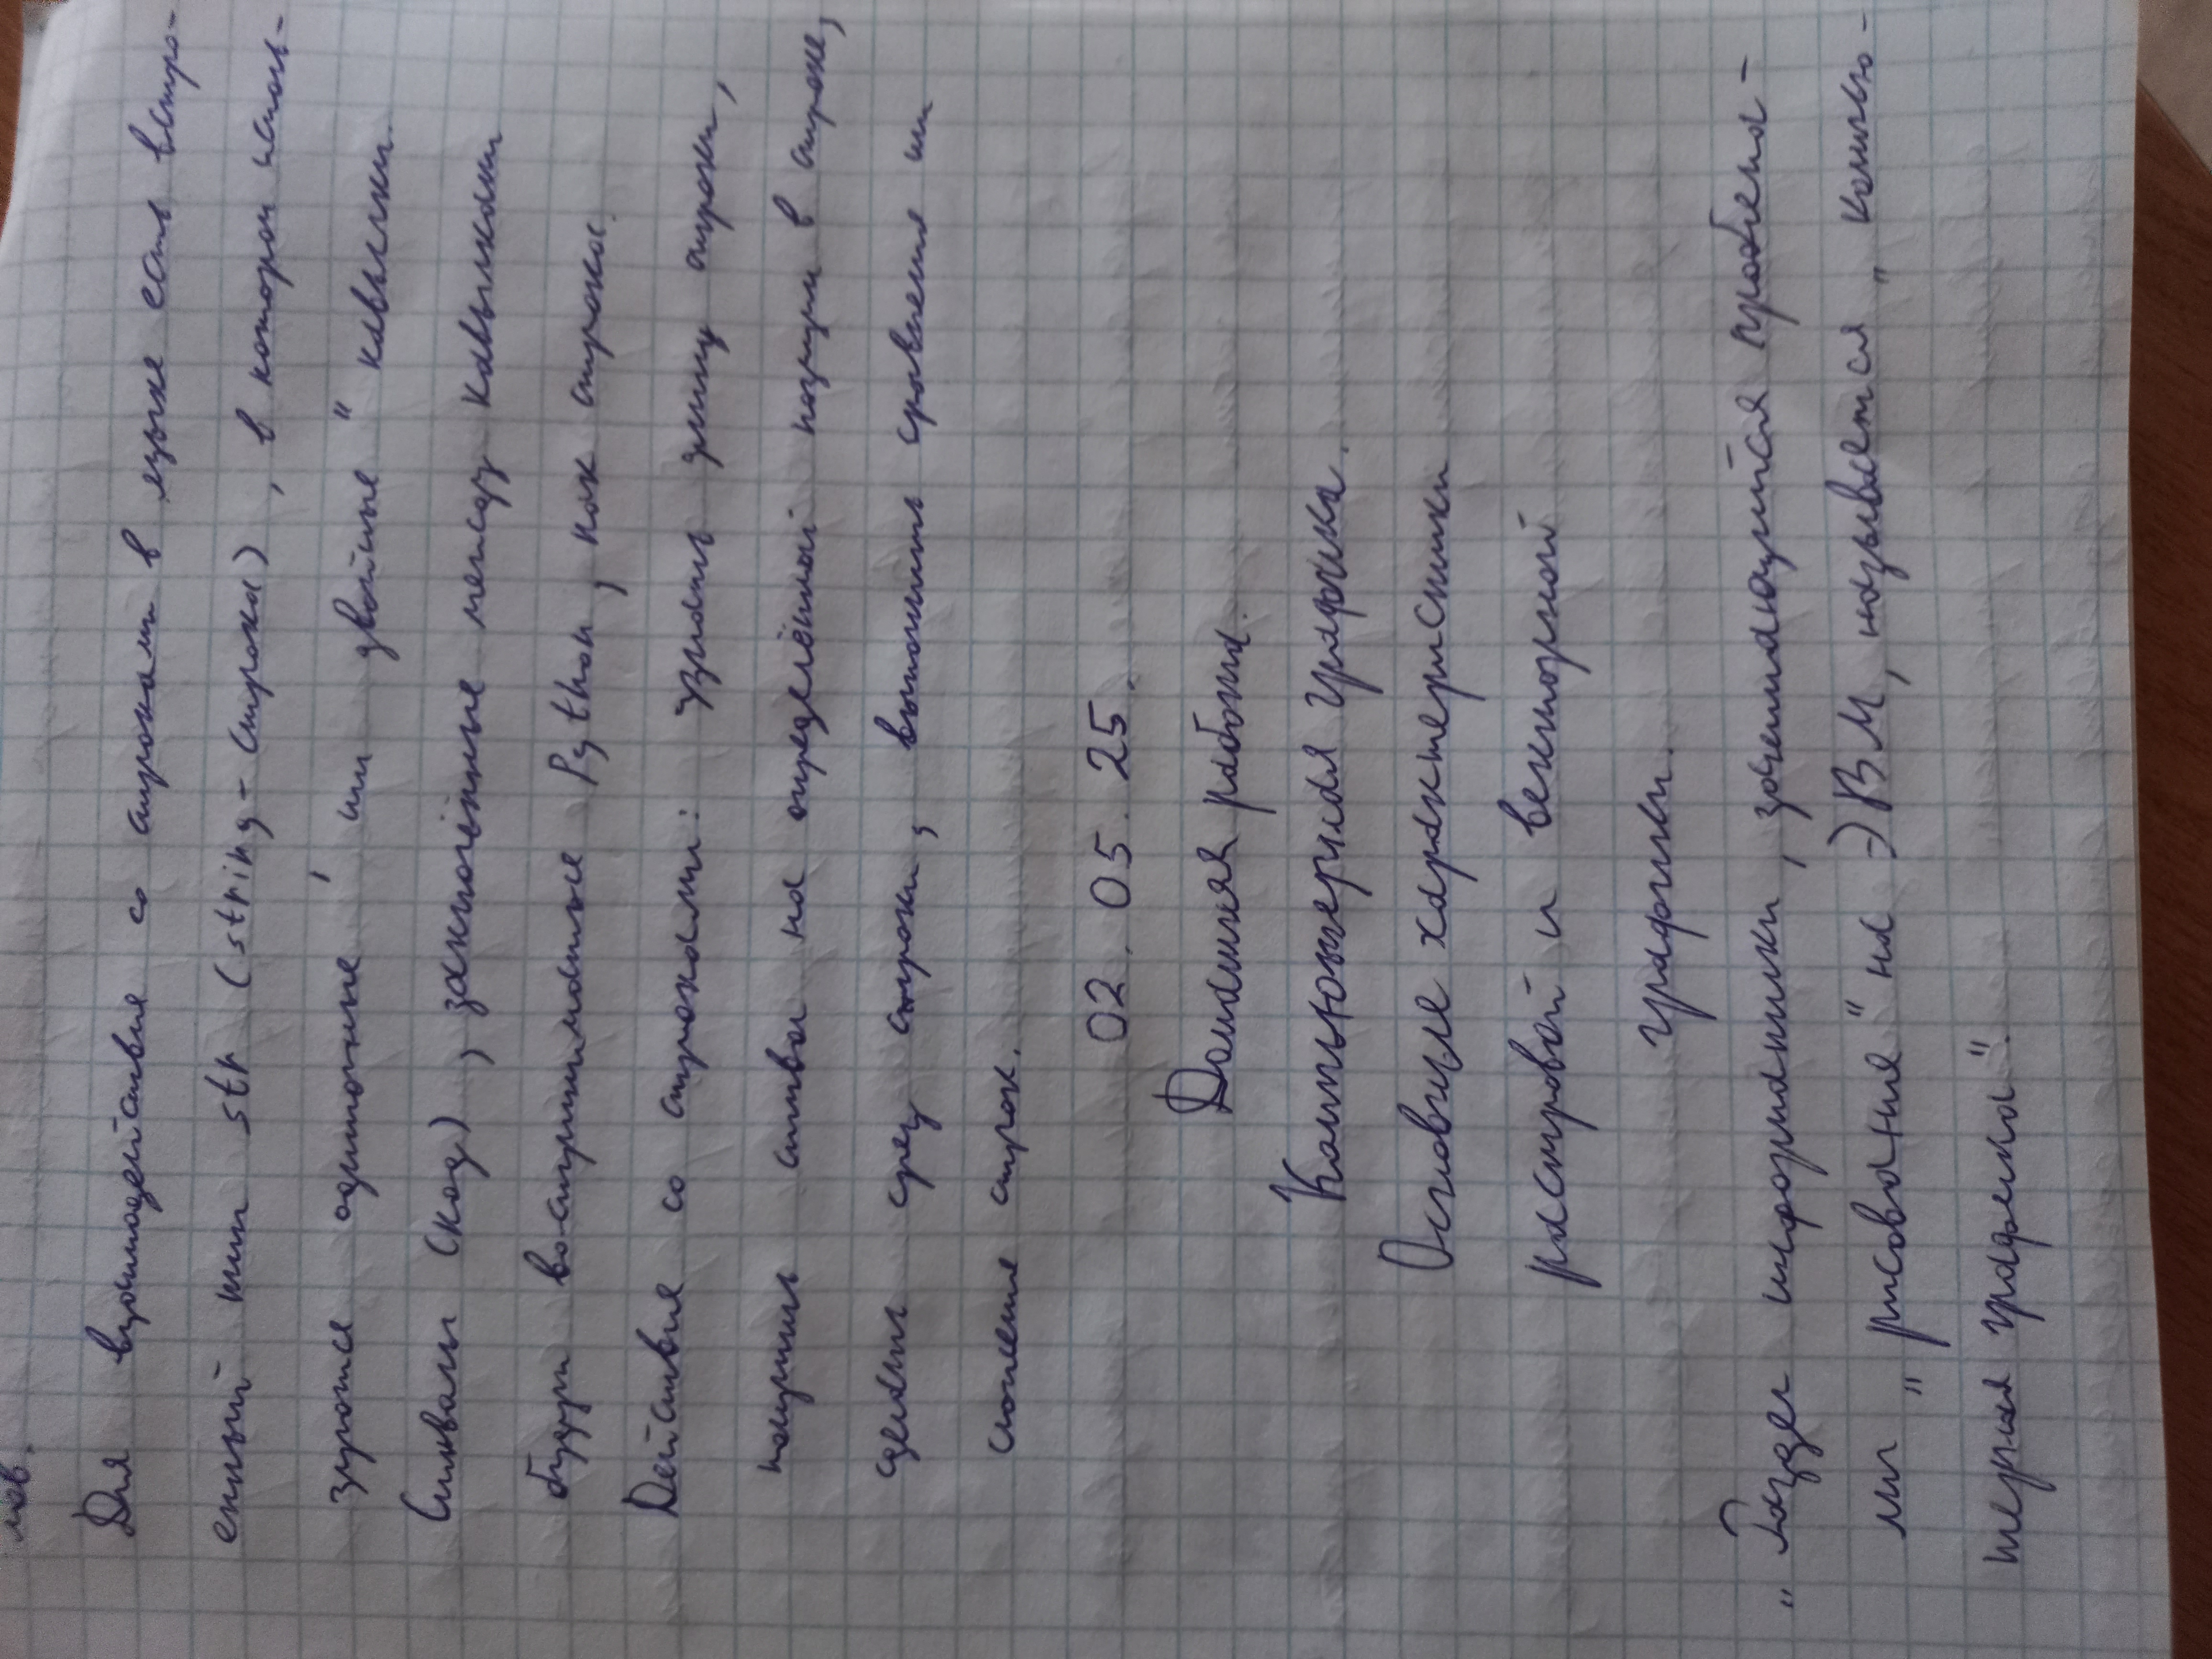 лов.
Для взаимодействия со строками в языке есть встро-
енный тип str (string - строка), в котором исполь-
зуются одиночные ' или двойные " кавычки.
Символы (код), заключённые между кавычками
будут воспринимаемые Python, как строка.
Действия со строками: Узнать длину строки,
получить символ на определённой позиции в строке,
сделать срез строки, выполнить сравнение или
сложение строк.
02.05.25.
Домашняя работа.
Компьютерная графика.
Основные характеристики
растровой и векторной
графики.
"Раздел информатики, занимающийся проблема-
ми "рисования" на ЭВМ, называется "компью-
терная графика".